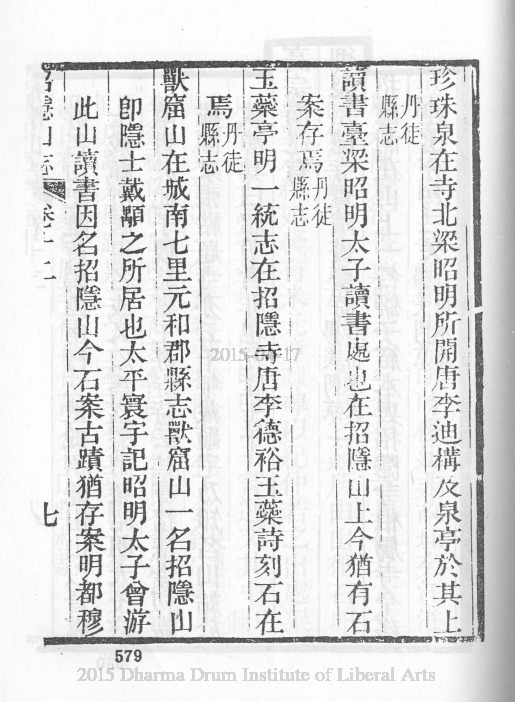 珍珠泉在寺北梁昭明所開唐李迪構及泉亭於其上
丹徒
縣志
讀書臺梁昭明太子讀書處也在招隱山上今猶有石
案存焉
丹徒
縣志
玉蘂亭明一統志在招隱寺唐李德裕玉蘂詩刻石在
焉
丹徒
縣志
獸窟山在城南七里元和郡縣志獸窟山一名招隱山
卽隱士戴顒之所居也太平寰宇記昭明太子曾游
此山讀書因名招隱山今石案古蹟猶存案明都穆
招隱山志 卷十二 七
579
2015 Dharma Drum Institute of Liberal Arts